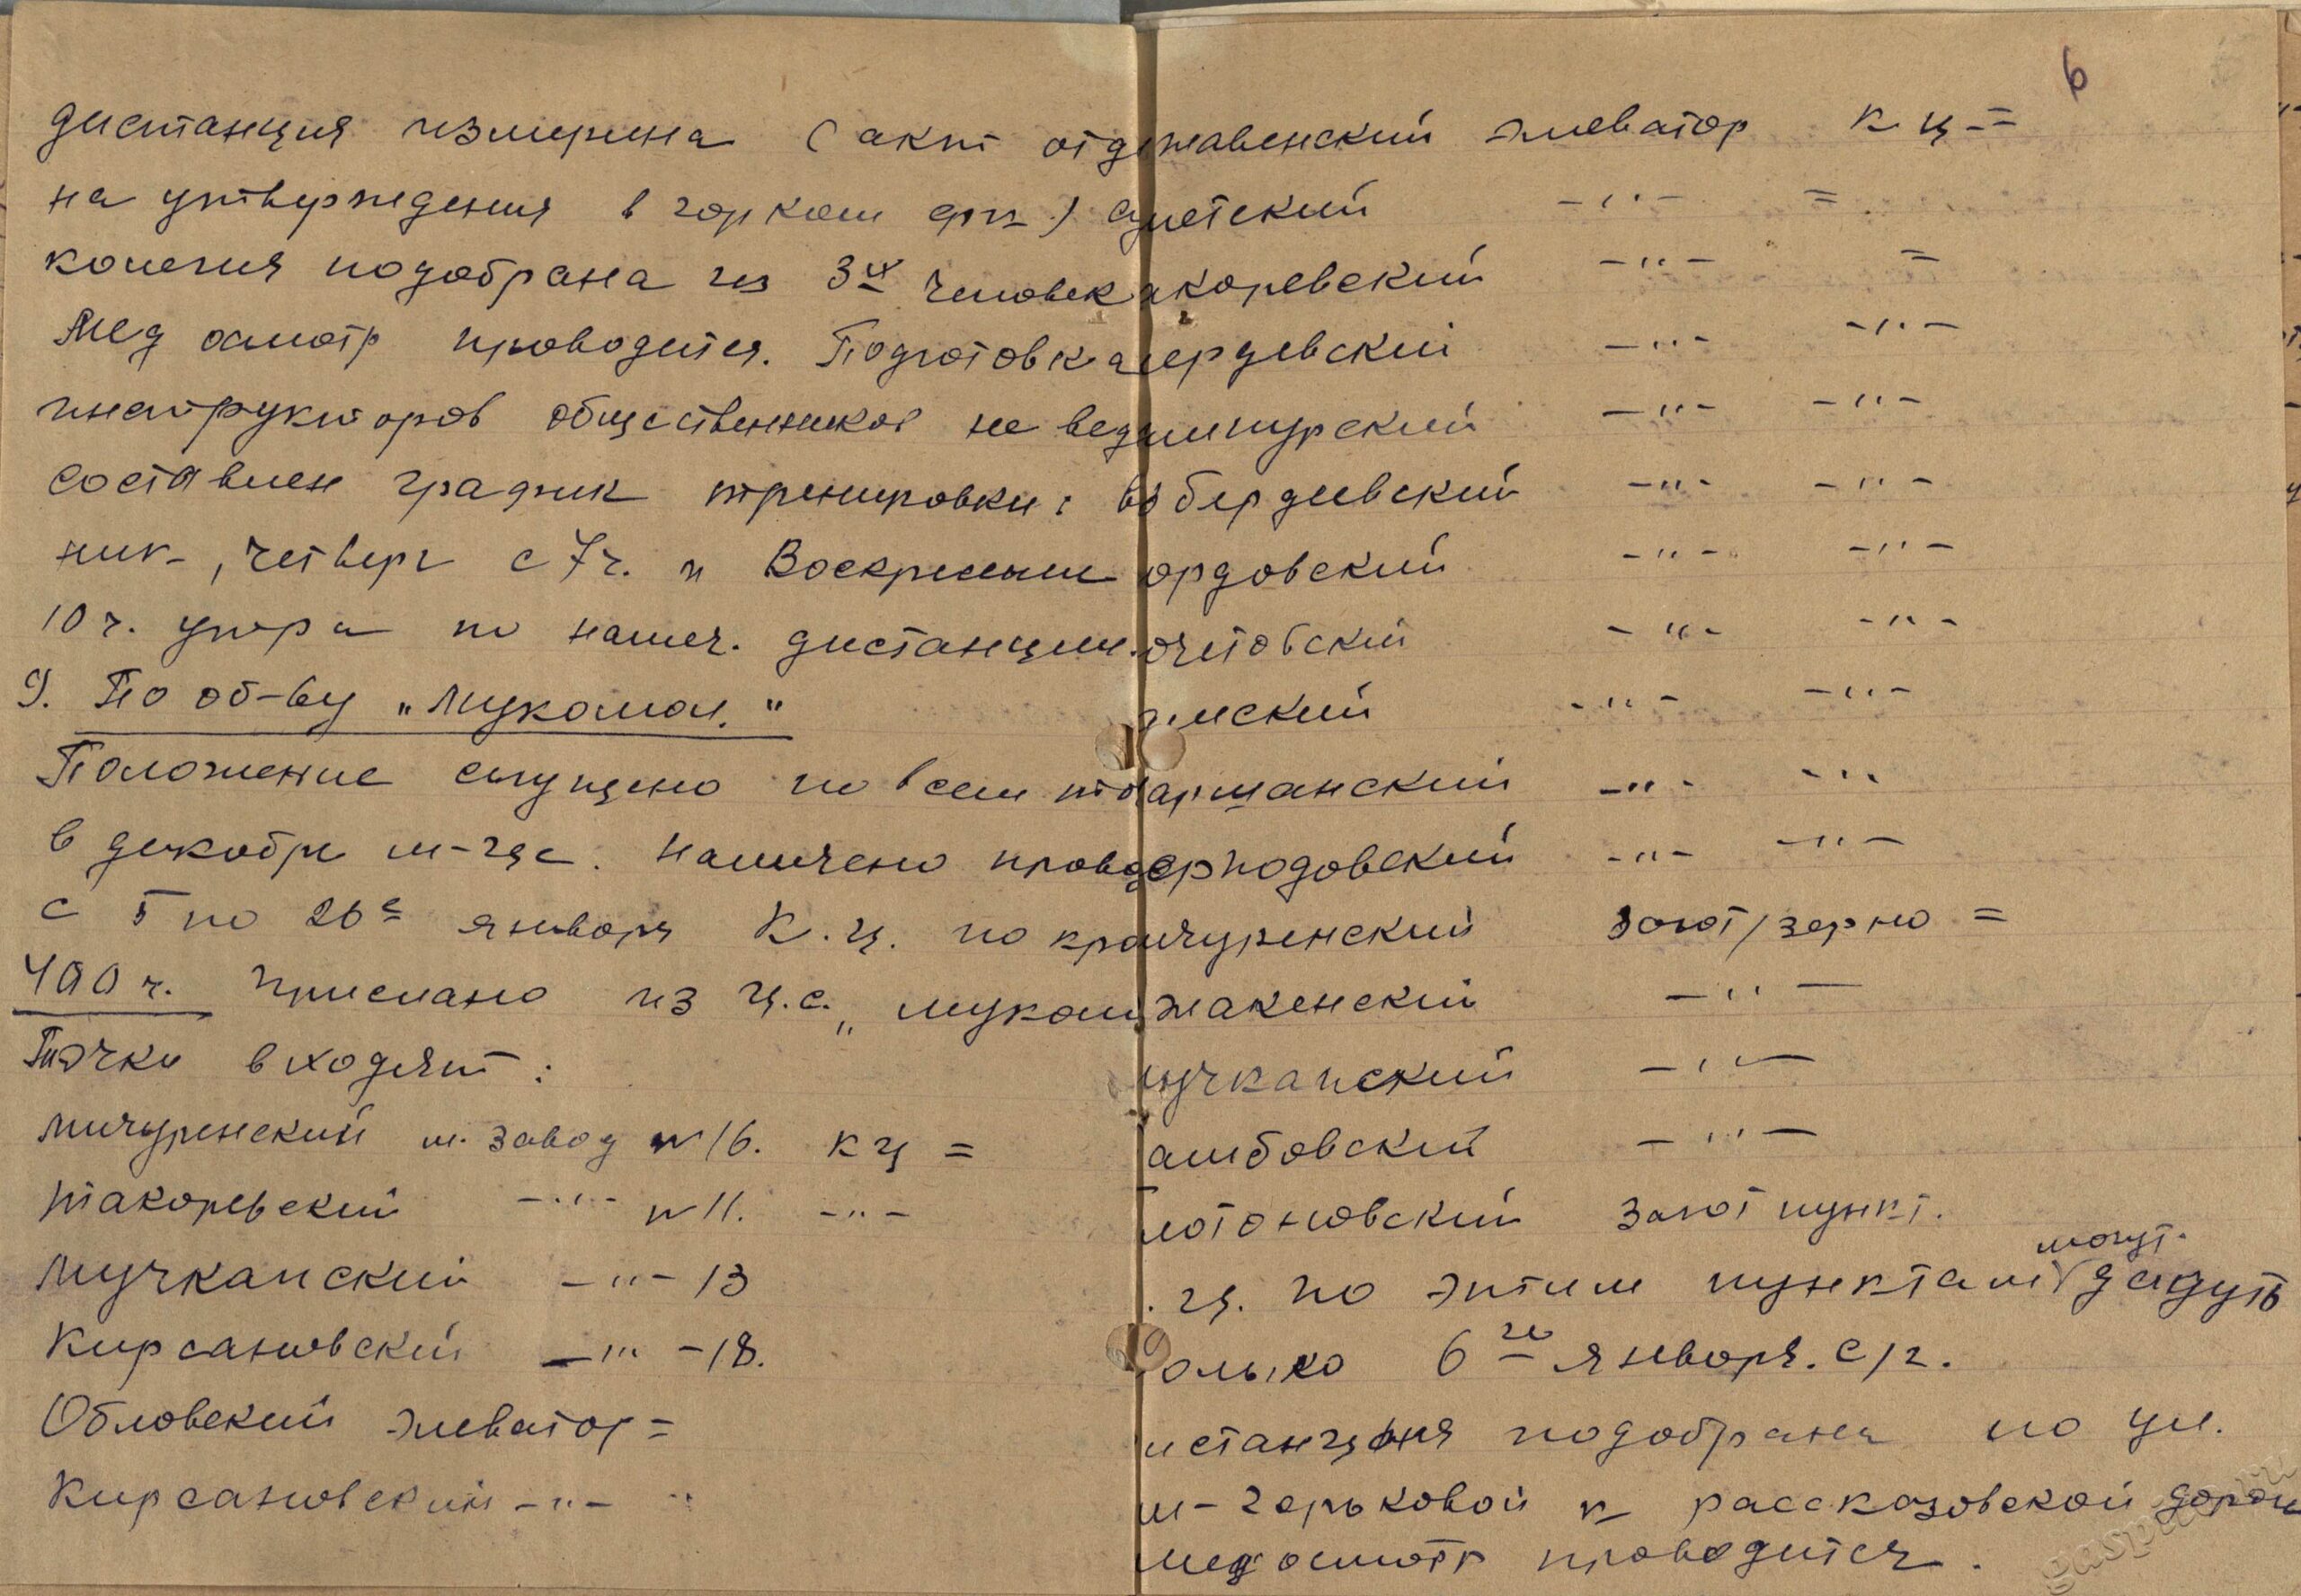 дистанция измерина (акт отд
на утверждения в горком фк)
колегия подобрана из 3х человек
Мед осмотр проводится. Подготовка
инструкторов общественников не вед
составлен график тренировки: вт
ник-, четверг с 7ч. и Воскресен
10ч. утра по намеч. дистанции.
9. По об-ву „Мукомол."
Положение спущено по всем то
в декабре м-це. Намечено провед
с 5 по 26е января К.ц. по кр
400 ч. прислано из Ц.с. „муком
Точки входят:
Мичуренский м. завод №16. кц =
Токоревский -"- №11. -"-
Мучкапский -"- 13
Кирсановский -"- 18.
Обловский элеватор =
Кирсановский -"-
6
ржавенский элеватор к ц-=
сметский -"- =
окоревский -"- =
ердевский -"- -"-
шпурский -"- -"-
обердеевский -"- -"-
ордовский -"- -"-
очетовский -"- -"-
мский -"- -"-
аршанский -"- -"-
ернодовский -"- -"-
ичуренский загот/зерно =
жакенский -"-
учкапский -"-
амбовский -"-
латоновский загот пункт.
.ц. по этим пунктам могут. дадуть
олько 6го января. с/г.
истанция подобрана по ул.
м-Горьковой к рассказовской дороги
медосмотр проводится.
gaspito.ru